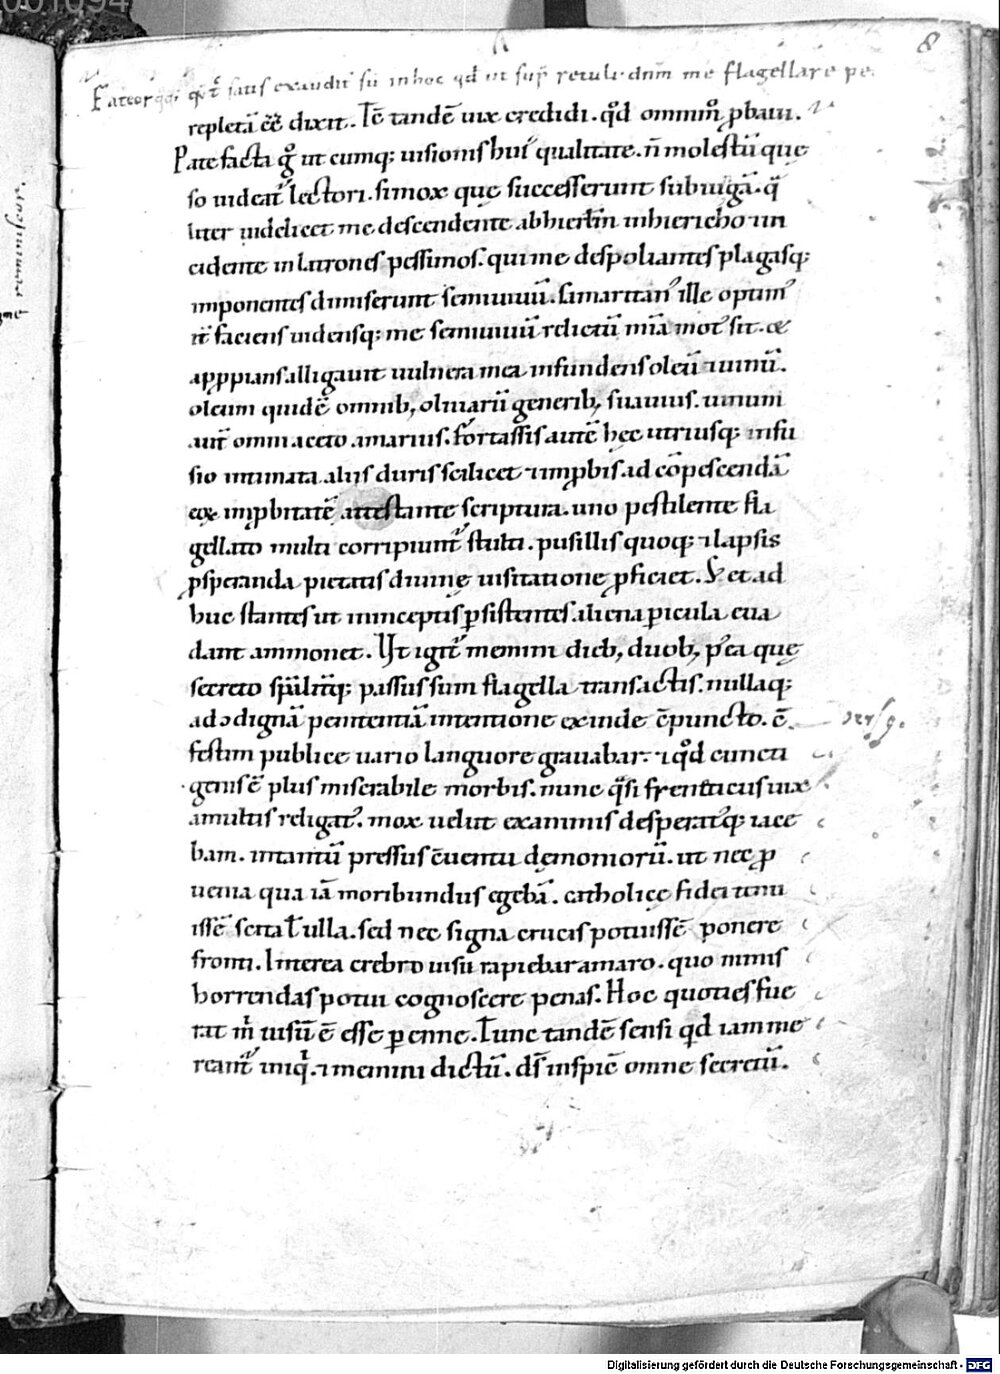 8
Fateor q̄ðē satis exaudit sū in hoc qd ut sup̄ retuli dnm me flagellare pe
repletā eē dixit. Tē tandē uix credidi. qd omnim̊ ꝓbaui.
Patefacta g̊ ut cumq; uisionis hui' qualitate. n̄ molestū que
so uideat' lectori. si mox que successerunt subiūgā. q̄
liter uidelicet me descendente ab hierlm̄ in hiericho in
cidente in latrones pessimos. qui me despoliantes plagasq;
imponentes dimiserunt semiuiuū. samaritan' ille optim'
it̄ faciens uidensq; me semiuiuū relictū mīa mot' sit. &
apꝓpians alligauit uulnera mea infundens oleū ⁊ uinū.
oleum quidē omnib; oliuarū generib; suauius. uinum
aut̄ omni aceto amarius. fortassis autē hec utriusq; infu
sio intimata. aliis duris scilicet ⁊ imꝓbis ad cōpescendā
eoꝝ imꝓbitatē attestante scriptura. uno pestilente fla
gellato multi corripiunt' stulti. pusillis quoq; ⁊ lapsis
ꝓsperanda pietatis diuine uisitatione ꝓficiet. S; et ad
huc stantes ut in inceptis ꝑsistentes aliena ꝑicula eua
dant ammonet. Ut igit' memini dieb; duob; p' ea que
secreto sp̄ūlit̄q; passus sum flagella transactis. nullaq;
ad ↄdignā penitentiā intentione exinde cōpuncto. cō
festim publice uario languore grauabar. ⁊ qd cuncti
genis ē plus miserabile morbis. nunc q̄si freneticus uix
a multis religat'. mox uelut exanimis desperat'q; iace
bam. intantū pressus cōuentu demoniorū. ut nec ꝓ
uenia qua iā moribundus egebā. catholice fidei tenu
issē secta l̄ ulla. sed nec signa crucis potuissē ponere
fronti. Interea crebro uisu rapiebar amaro. quo nimis
horrendas potui cognoscere penas. Hoc quoties fue
rat m̄ uisū ē esse ꝑenne. Tunc tandē sensi qd iam me
reant' iniqi. ⁊ memini dictū. ds̄ inspicē omne secretū.
reminiscor.
Digitalisierung gefördert durch die Deutsche Forschungsgemeinschaft - DFG